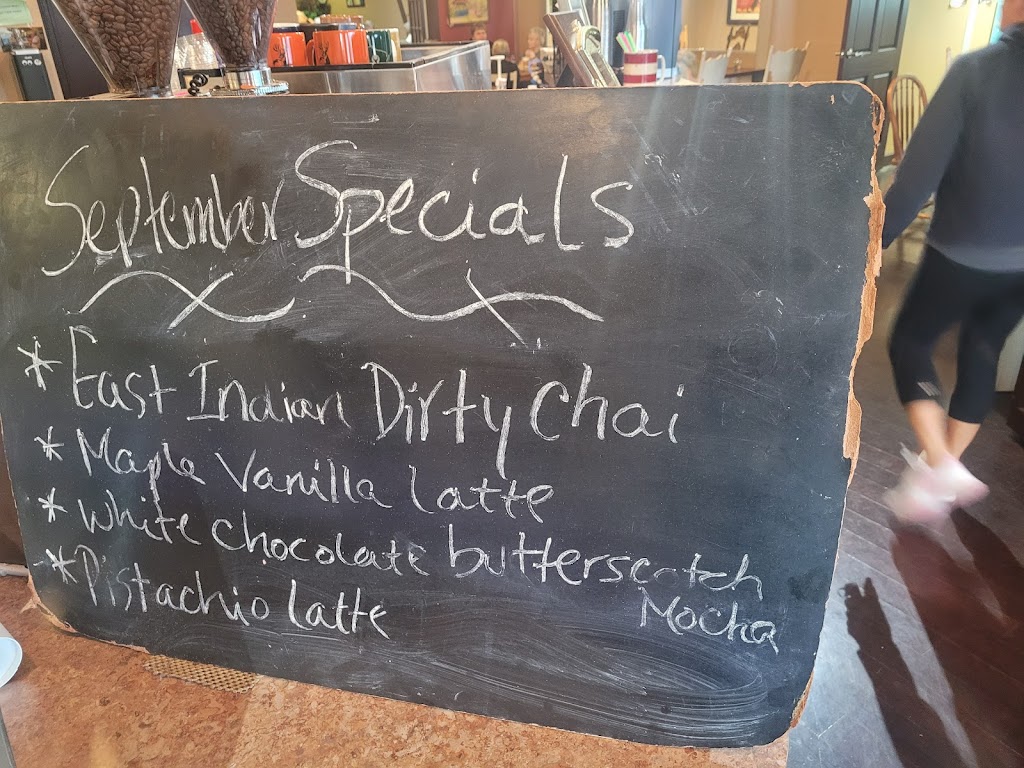 September Specials
* East Indian Dirty Chai
* Maple Vanilla latte
* White chocolate butterscotch
Mocha
* Pistachio latte